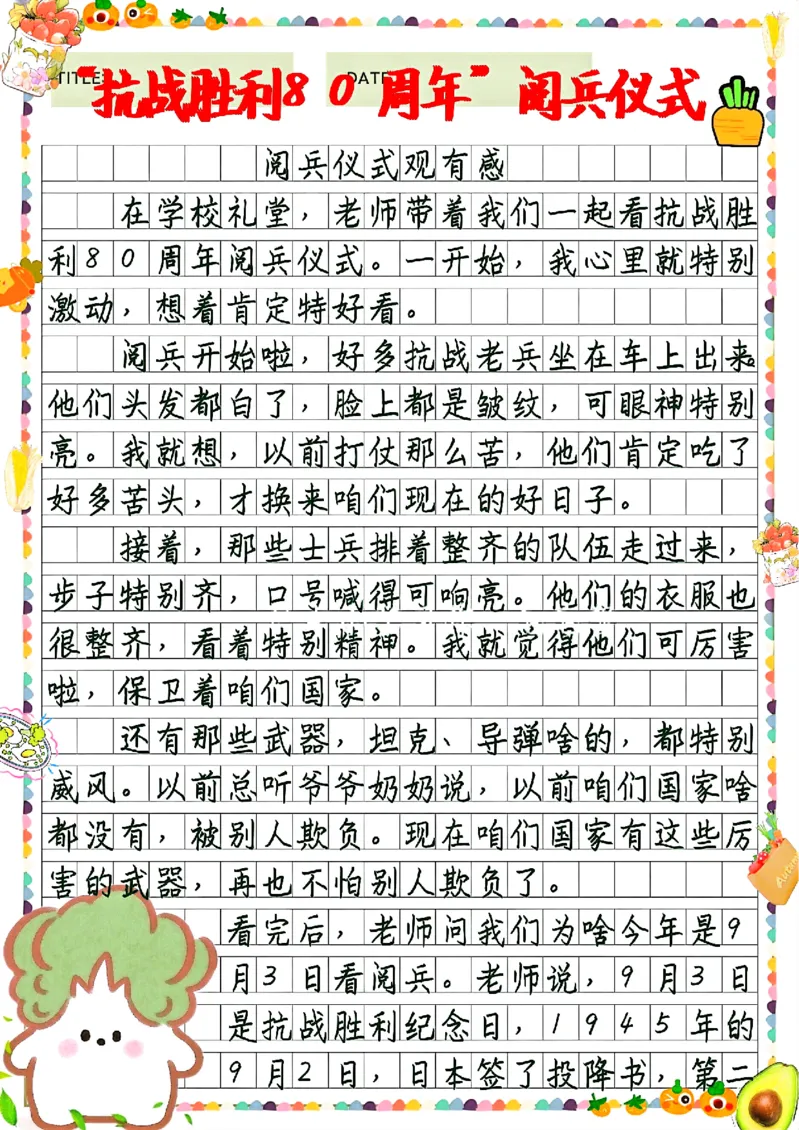 TITLE:
DATE
“抗战胜利80周年”阅兵仪式
阅兵仪式观有感
在学校礼堂，老师带着我们一起看抗战胜
利80周年阅兵仪式。一开始，我心里就特别
激动，想着肯定特好看。
阅兵开始啦，好多抗战老兵坐在车上出来。
他们头发都白了，脸上都是皱纹，可眼神特别
亮。我就想，以前打仗那么苦，他们肯定吃了
好多苦头，才换来咱们现在的好日子。
接着，那些士兵排着整齐的队伍走过来，
步子特别齐，口号喊得可响亮。他们的衣服也
很整齐，看着特别精神。我就觉得他们可厉害
啦，保卫着咱们国家。
还有那些武器，坦克、导弹啥的，都特别
威风。以前总听爷爷奶奶说，以前咱们国家啥
都没有，被别人欺负。现在咱们国家有这些厉
害的武器，再也不怕别人欺负了。
看完后，老师问我们为啥今年是9
月3日看阅兵。老师说，9月3日
是抗战胜利纪念日，1945年的
9月2日，日本签了投降书，第二